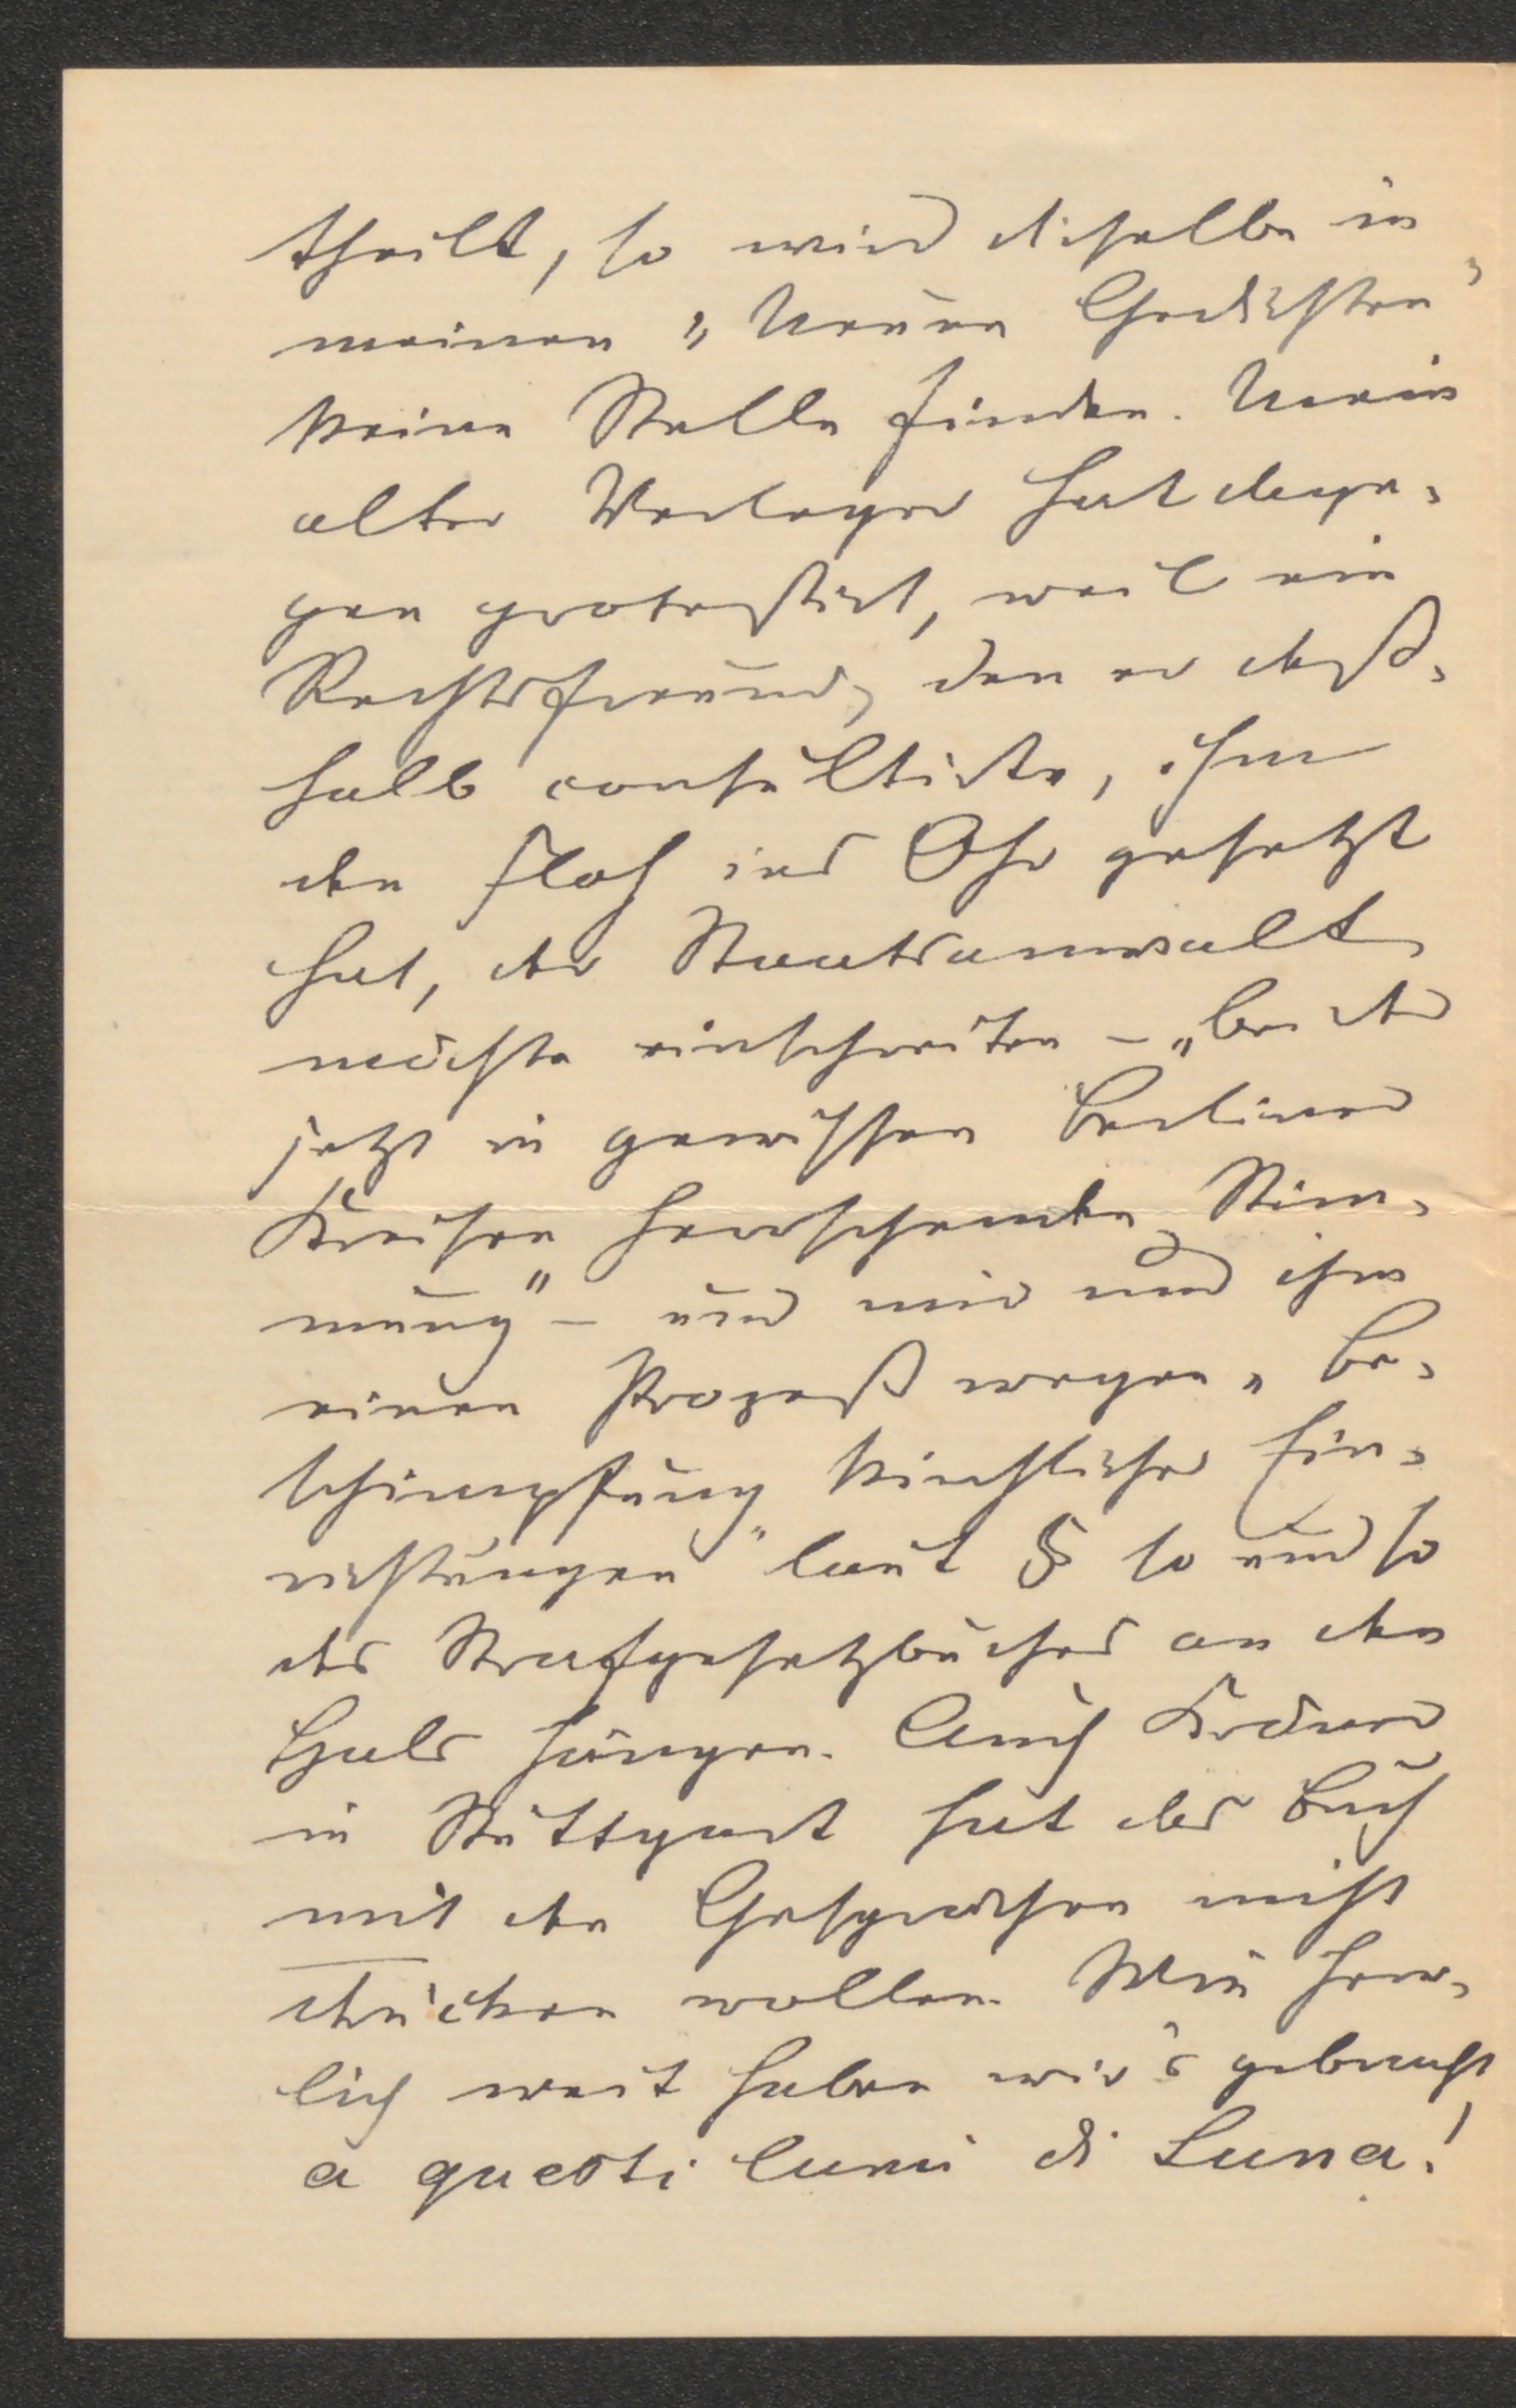 theilt, so wird dieselbe in
meinen „Neuen Gedichten"
keine Stelle finden. Mein
alter Verleger hat dage-
gen protestirt, weil ein
Rechtsfreund, den er deß-
halb consultirte, ihm
den Floh ins Ohr gesetzt
hat, der Staatsanwalt
möchte einschreiten – „bei der
jetzt in gewissen Berliner
Kreisen herrschenden Stim-
mung" – und mir und ihm
einen Prozeß wegen „Be-
schimpfung kirchlicher Ein-
richtungen" laut § so und so
des Strafgesetzbuches an den
Hals hängen. Auch Kröner
in Stuttgart hat das Buch
mit den Gesprächen nicht
drucken wollen. Wie herr-
lich weit haben wir's gebracht
a questi lumi di Luna!